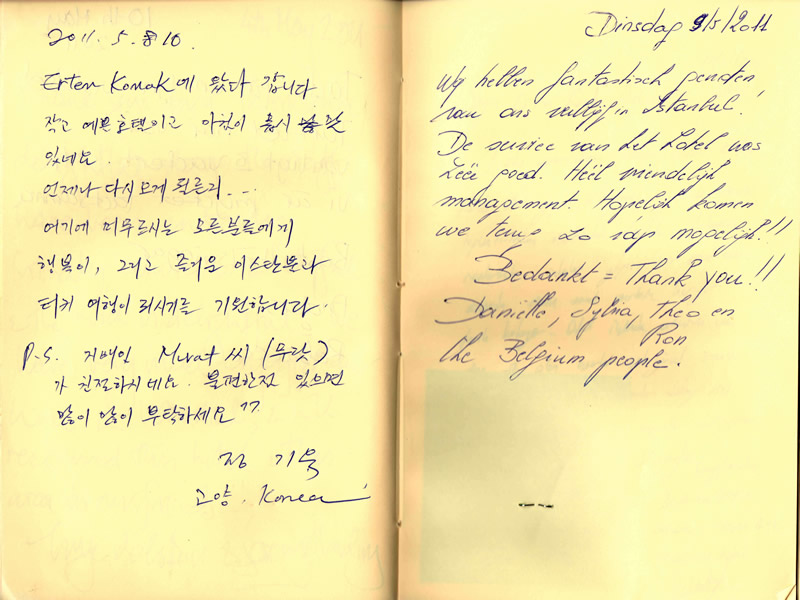 2011. 5. 8 10.
Erten Konak에 왔다 갑니다
작고 예쁜 호텔이고 아침이 몹시 맛
있네요.
언제나 다시 오게 될른지...
여기에 머무르시는 모든분들에게
행복이, 그리고 즐거운 이스탄불과
터키 여행이 되시기를 기원합니다.
P.S. 지배인 Murat 씨 (무랏)
가 친절하시네요. 불편한점 있으면
많이 많이 부탁하세요 ^^
정 기욱
고양. Korea
Dinsdag 9/5/2011
Wij hebben fantastisch genoten
van ons verblijf in Istanbul!
De service van het hotel was
zéér goed. Héél vriendelijk
management. Hopelijk komen
we terug zo rap mogelijk!!
Bedankt = Thank you!!
Daniëlle, Sylvia, Theo en
Ron
the Belgium people.